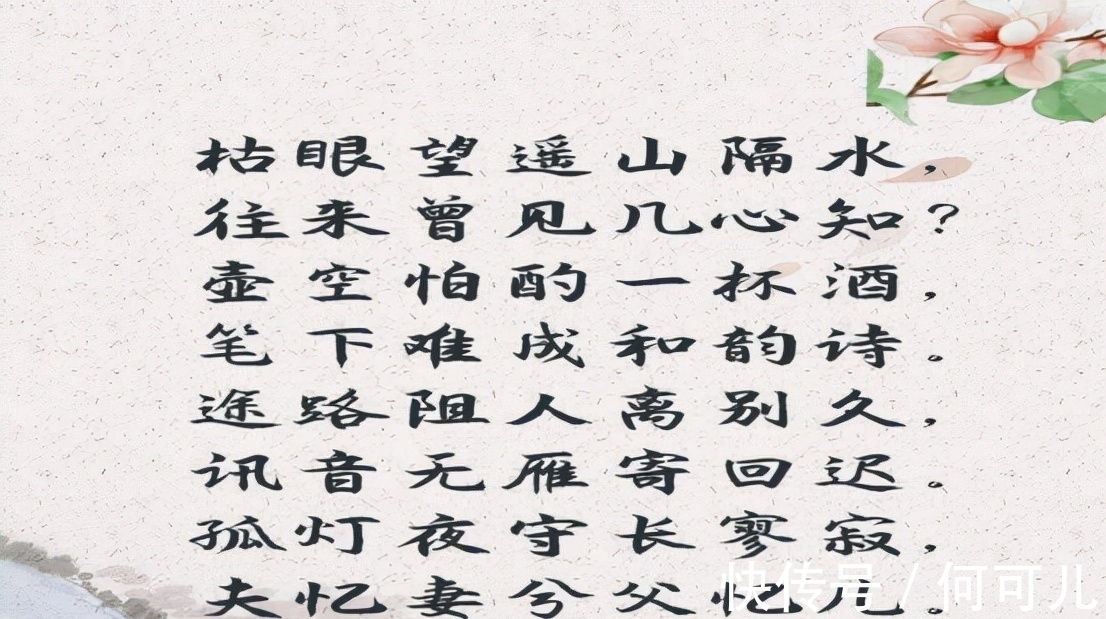 枯眼望遥山隔水,
往来曾见几心知?
壶空怕酌一杯酒,
笔下难成和韵诗。
途路阻人离别久,
讯音无雁寄回迟。
孤灯夜守长寥寂,
夫忆妻兮父忆儿。
快传号 / 何可儿